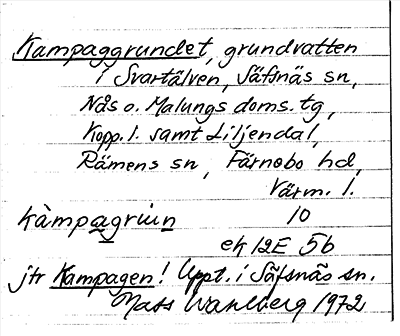 Kampaggrundet, grundvatten
i Svartälven, Säfsnäs sn,
Nås o. Malungs doms. tg,
Kopp. l. samt Liljendal,
Rämens sn, Färnebo hd,
Värm. l.
kàmpagrùn 10
ek 12E 5b
jfr Kampagen! Uppt. i Säfsnäs sn.
Mats Wahlberg 1972